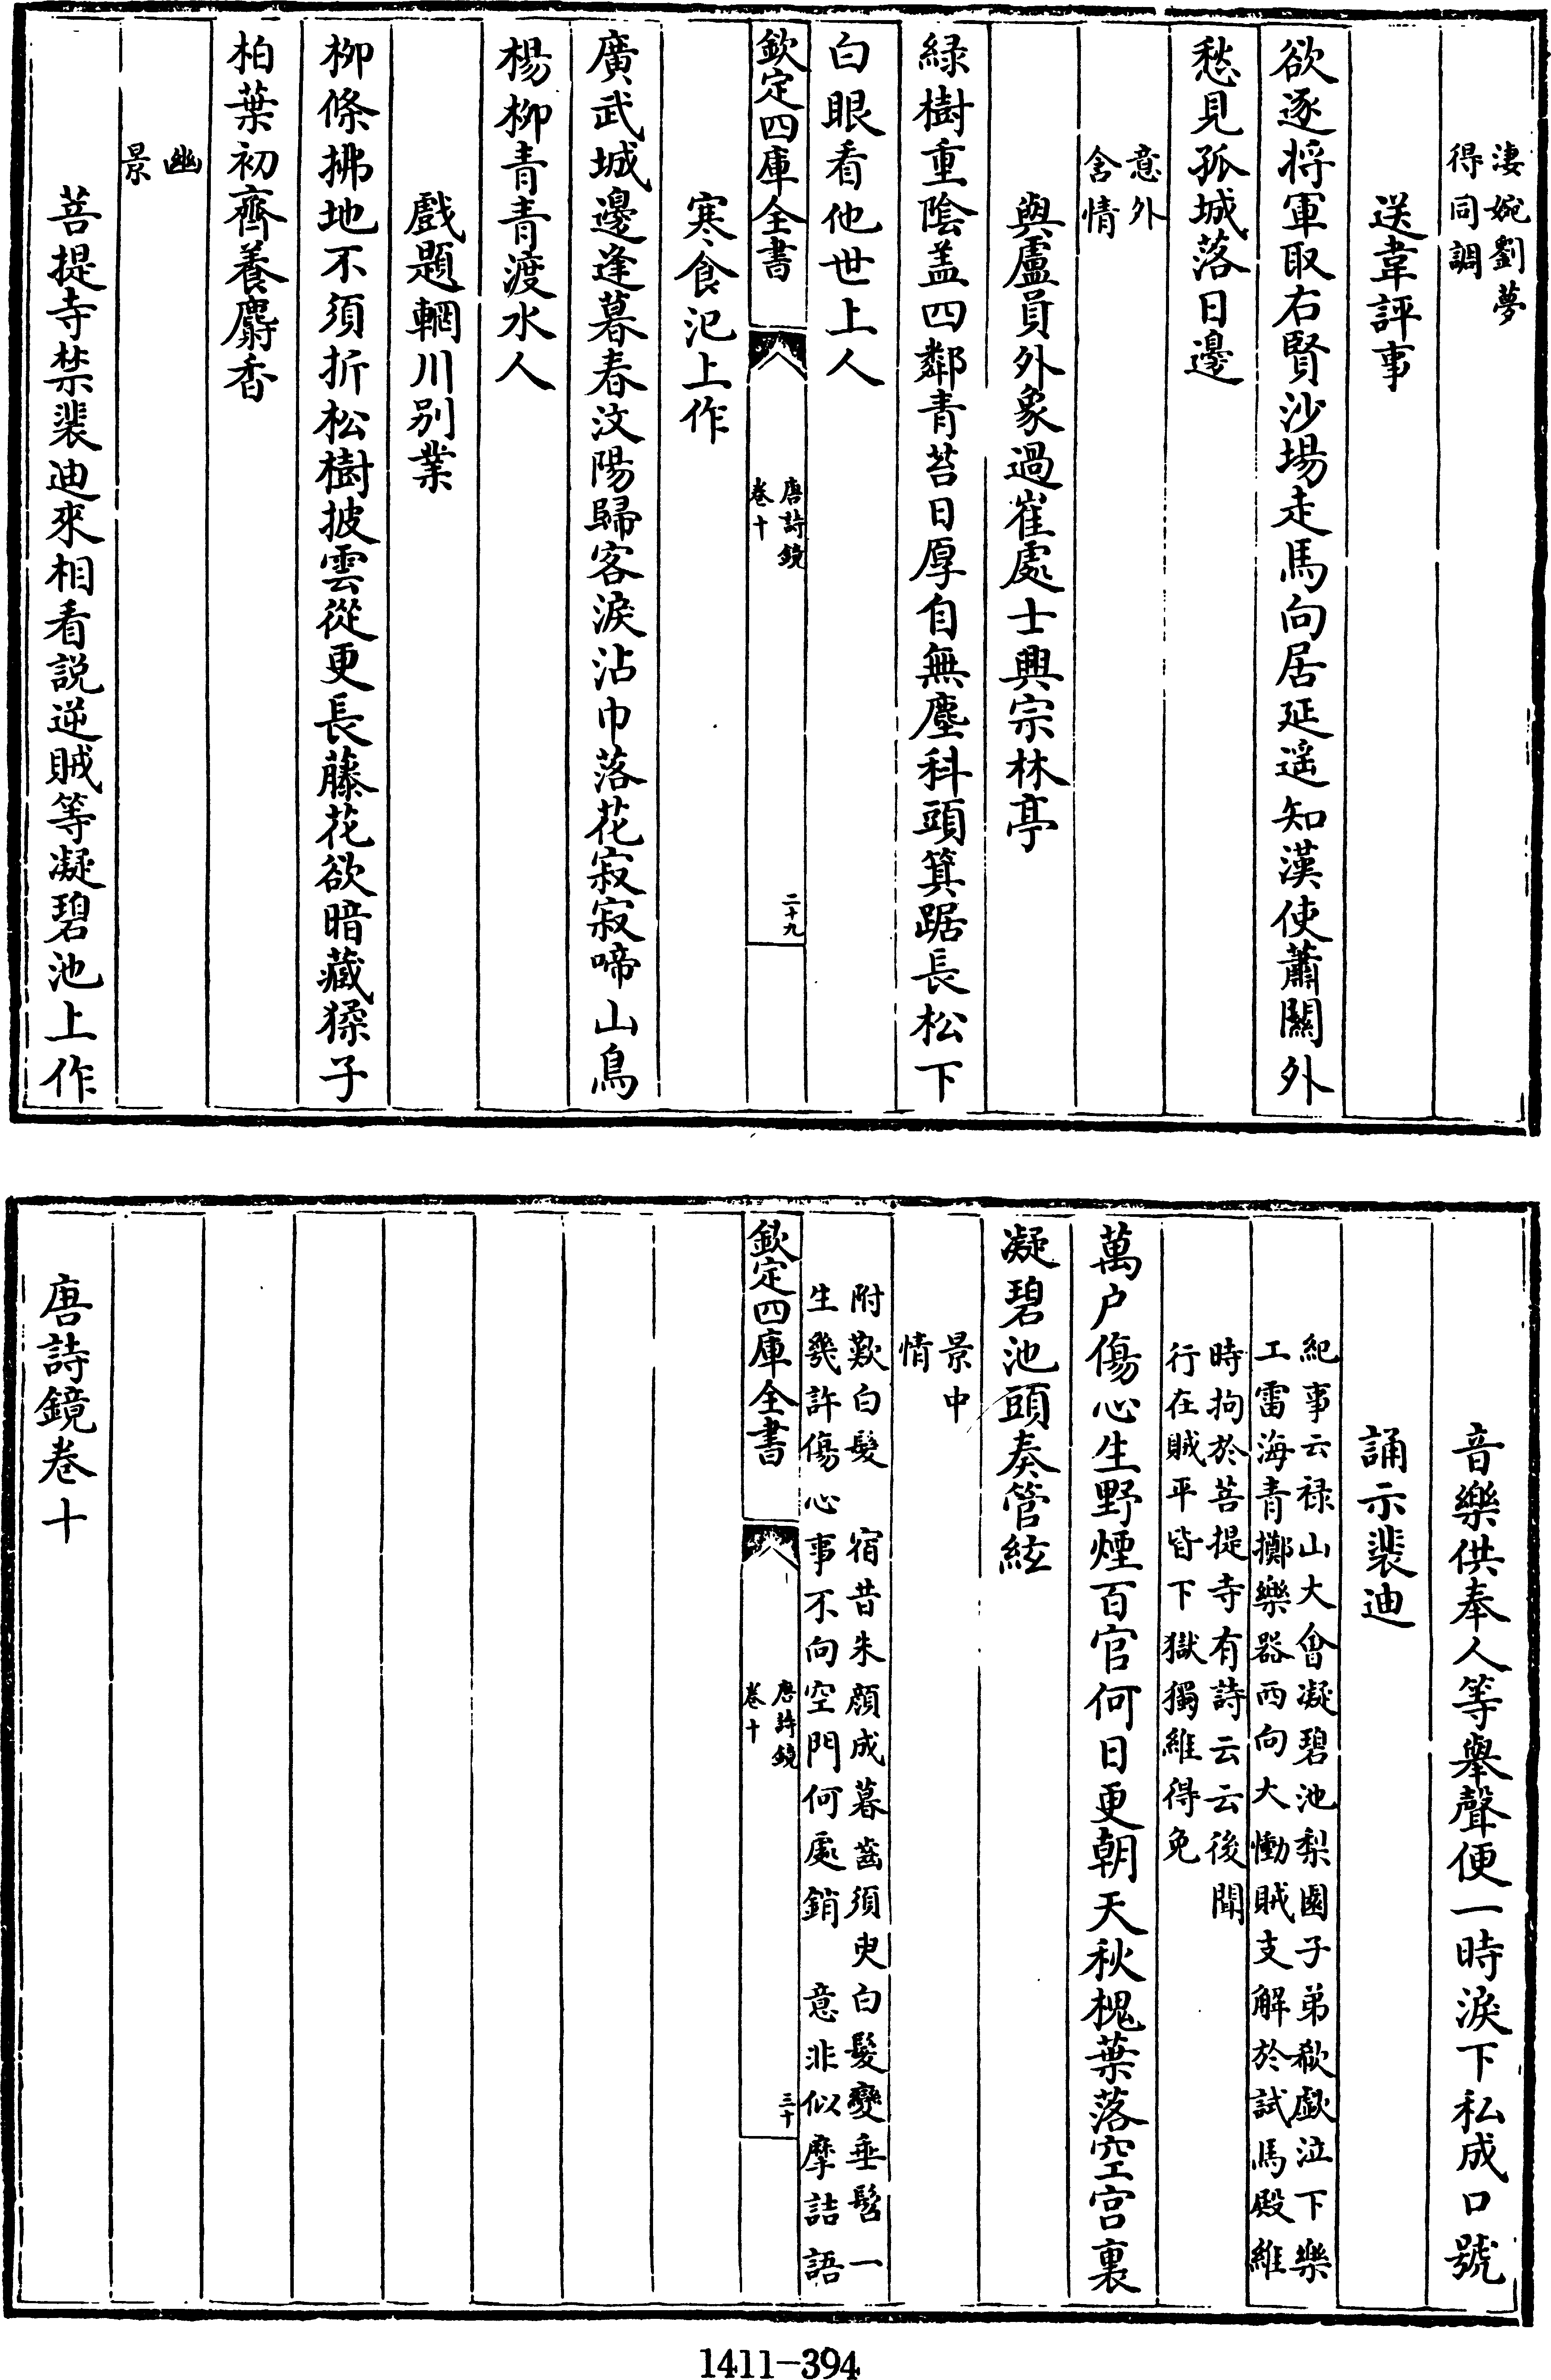 淒婉劉夢
得同調
送韋評事
欲逐将軍取右賢沙場走馬向居延遥知漢使蕭關外
愁見孤城落日邊
意外
含情
與盧員外象過崔處士興宗林亭
緑樹重陰盖四鄰青苔日厚自無塵科頭箕踞長松下
白眼看他世上人
欽定四庫全書
唐詩鏡
卷十
二十九
寒食汜上作
廣武城邊逢暮春汶陽歸客淚沾巾落花寂寂啼山鳥
楊柳青青渡水人
戲題輞川别業
柳條拂地不須折松樹披雲從更長藤花欲暗藏猱子
柏葉初齊養麝香
幽
景
菩提寺禁裴迪來相看説逆賊等凝碧池上作
音樂供奉人等舉聲便一時淚下私成口號
誦示裴迪
紀事云禄山大會凝碧池梨園子弟欷歔泣下樂
工雷海青擲樂器西向大慟賊支解於試馬殿維
時拘於菩提寺有詩云云後聞
行在賊平皆下獄獨維得免
萬户傷心生野煙百官何日更朝天秋槐葉落空宫裏
凝碧池頭奏管絃
景中
情
附歎白髮 宿昔朱顔成暮齒須臾白髮變垂髫一
生幾許傷心事不向空門何處銷 意非似摩詰語
欽定四庫全書
唐詩鏡
卷十
三十
唐詩鏡卷十
1411-394